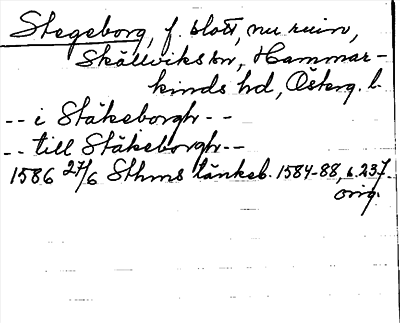 Stegeborg, f. slott, nu ruin,
Skällviks sn, Hammar-
kinds hd, Österg. l.
-- i Stäkeborgh --
-- till Stäkeborgh --
1586 27/6 Sthms tänkeb. 1584-88, s. 237.
orig.